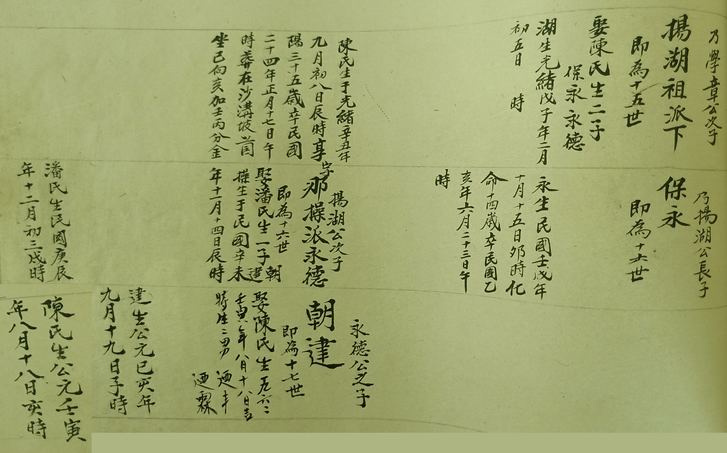 乃學章公次子
揚湖祖派下
即為十五世
娶陳氏生二子
保永永德
湖生光緒戊子年二月
初五日 時
陳氏生于光緒辛丑年
九月初八日辰時享
陽三十五歲卒民國
二十四年正月十七日午
時葬在沙溝坡
坐巳向亥加壬丙分金
乃揚湖公長子
保永
即為十六世
永生民國壬戌年
十月十五日卯時化
命十四歲卒民國乙
亥年六月二十三日午
時
揚湖公次子
字那操派永德
即為十六世
娶潘氏生一子朝建
操生于民國辛未
年十二月十四日辰時
潘氏生民國庚辰
年十二月初三戌時
永德公之子
朝建
即為十七世
娶陳氏生
壬寅年八月十八日亥
時生二男 迺丰
迺霖
建生公元己亥年
九月十九日子時
陳氏生公元壬寅
年八月十八日亥時